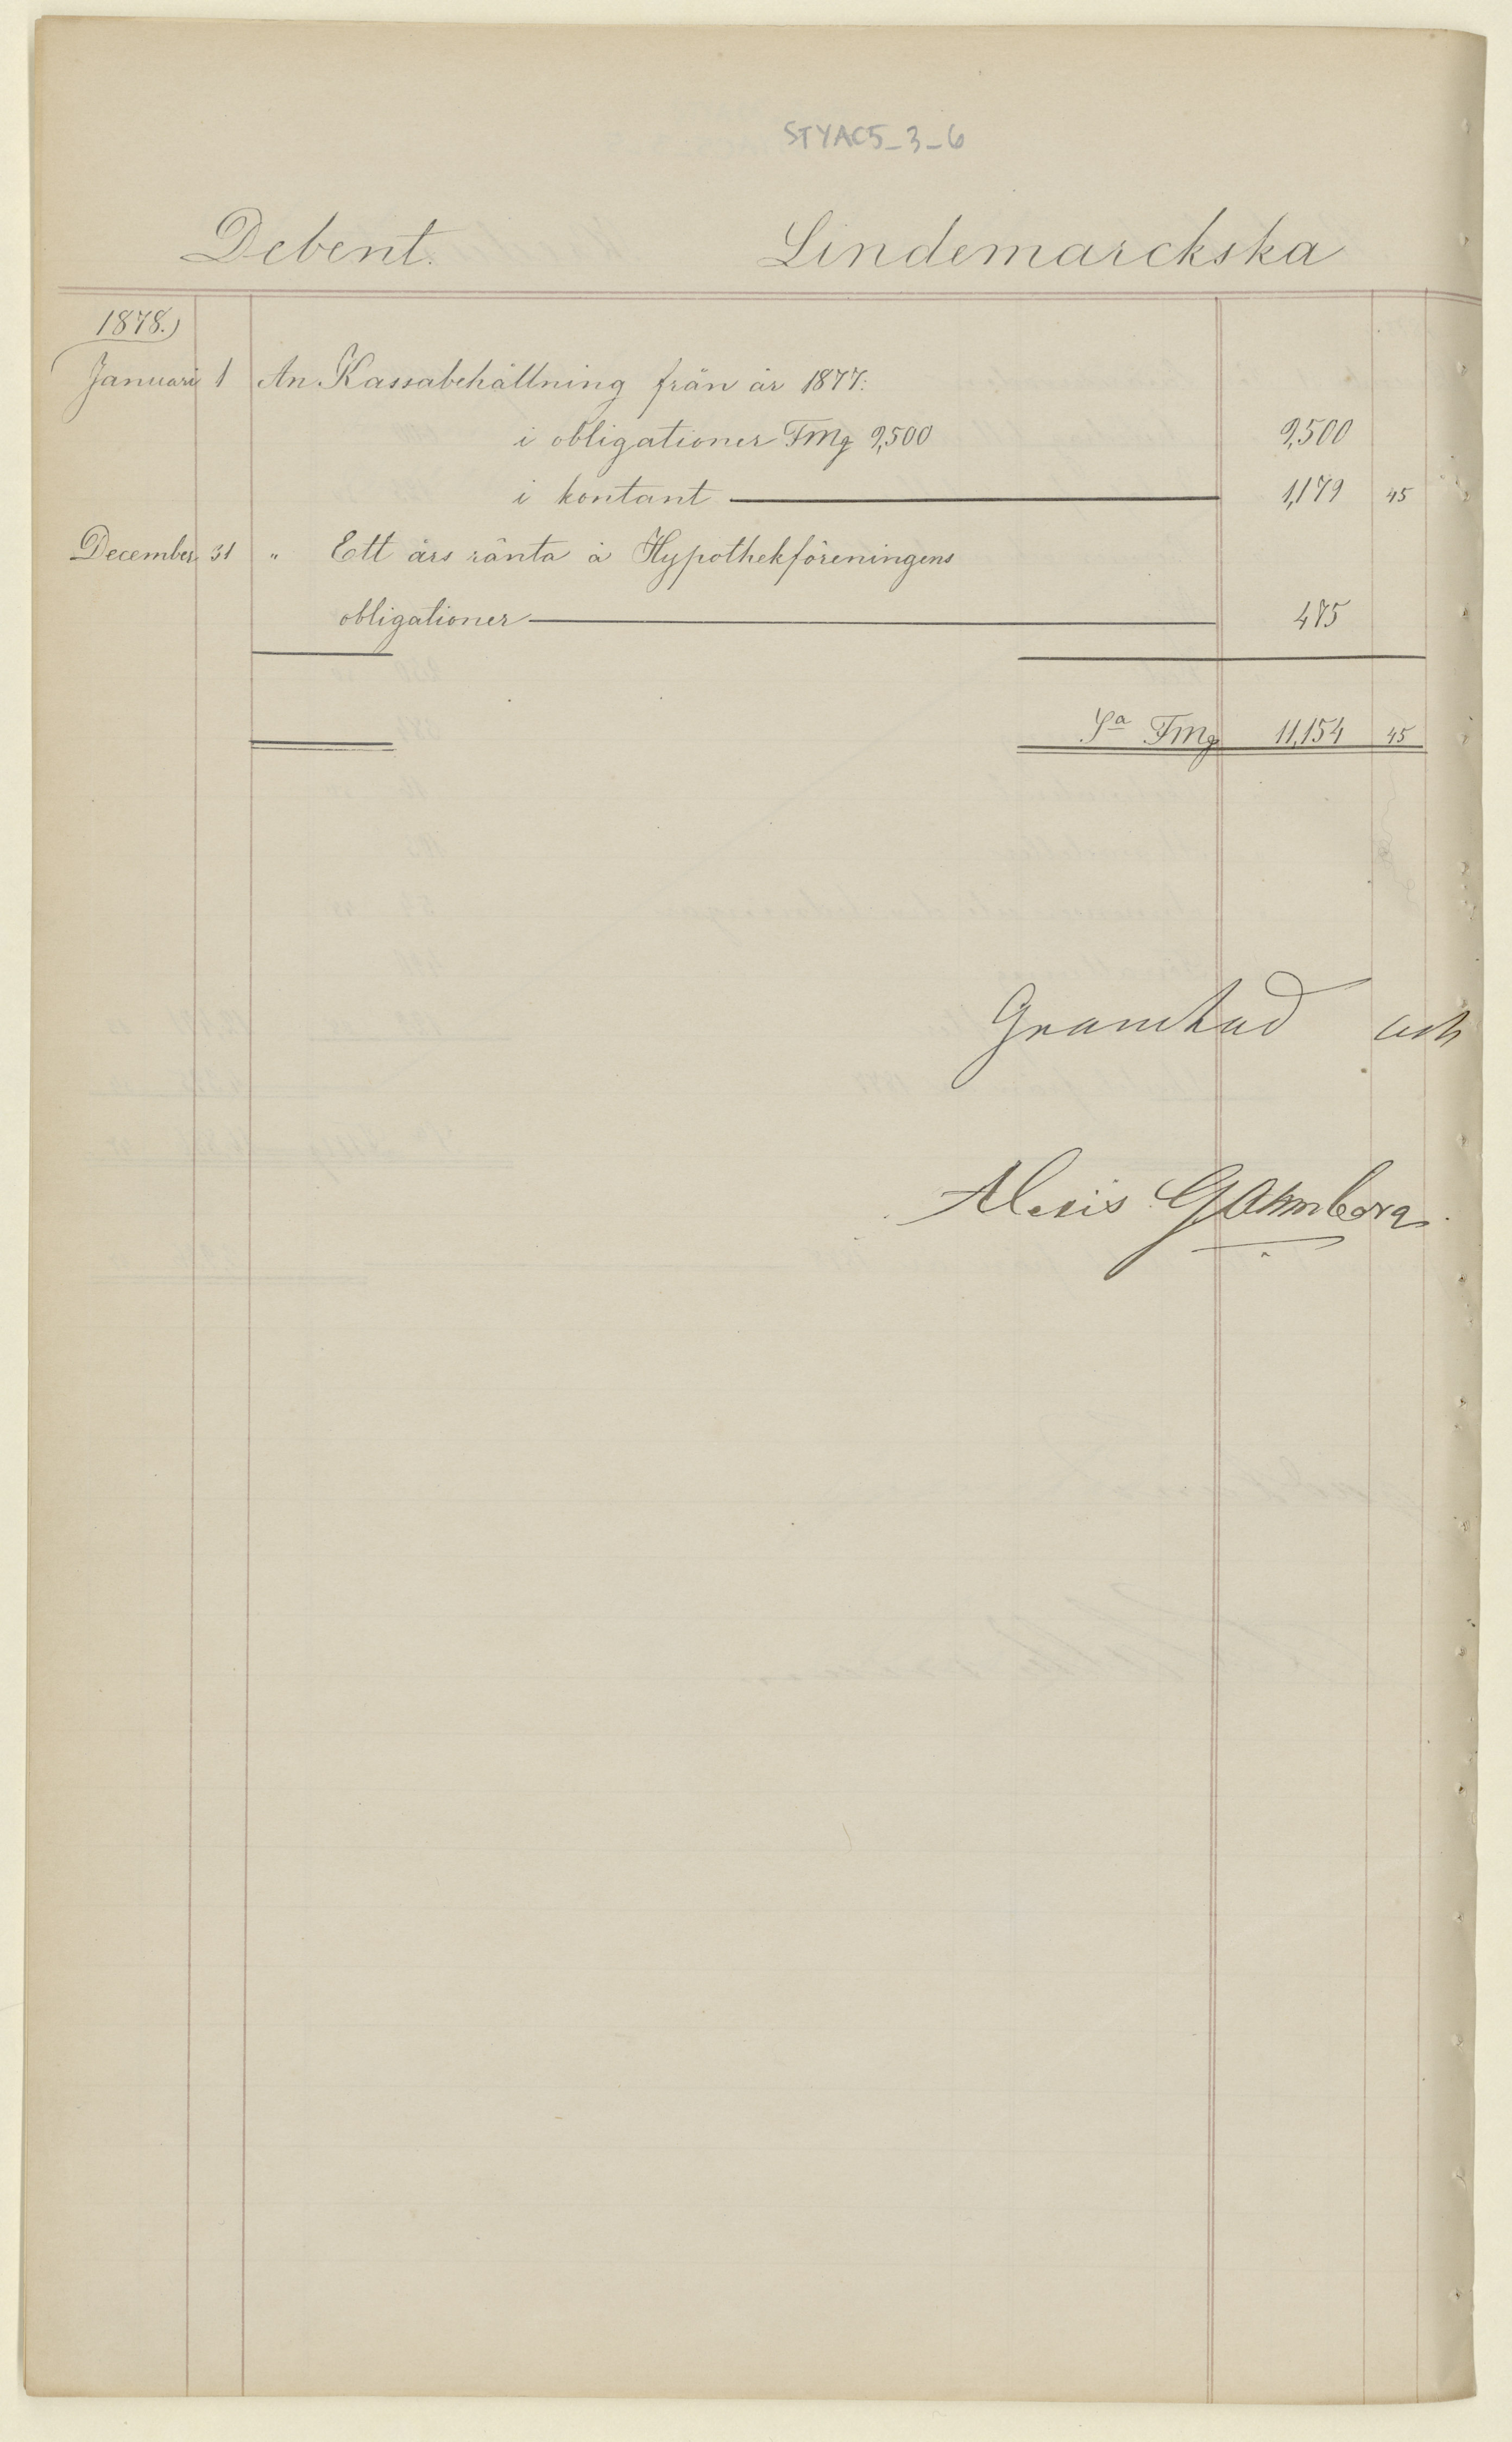 STYAC5_3_6
Debent. Lindemarckska
1878.
Januari 1 An Kassabehållning från år 1877:
i obligationer Fmg 9,500 9,500
i kontant 1,179 45
December 31 " Ett års ränta å Hypothekföreningens
obligationer 475
Sa Fmg 11,154 45
Granskad och
Alexis Gadmberg